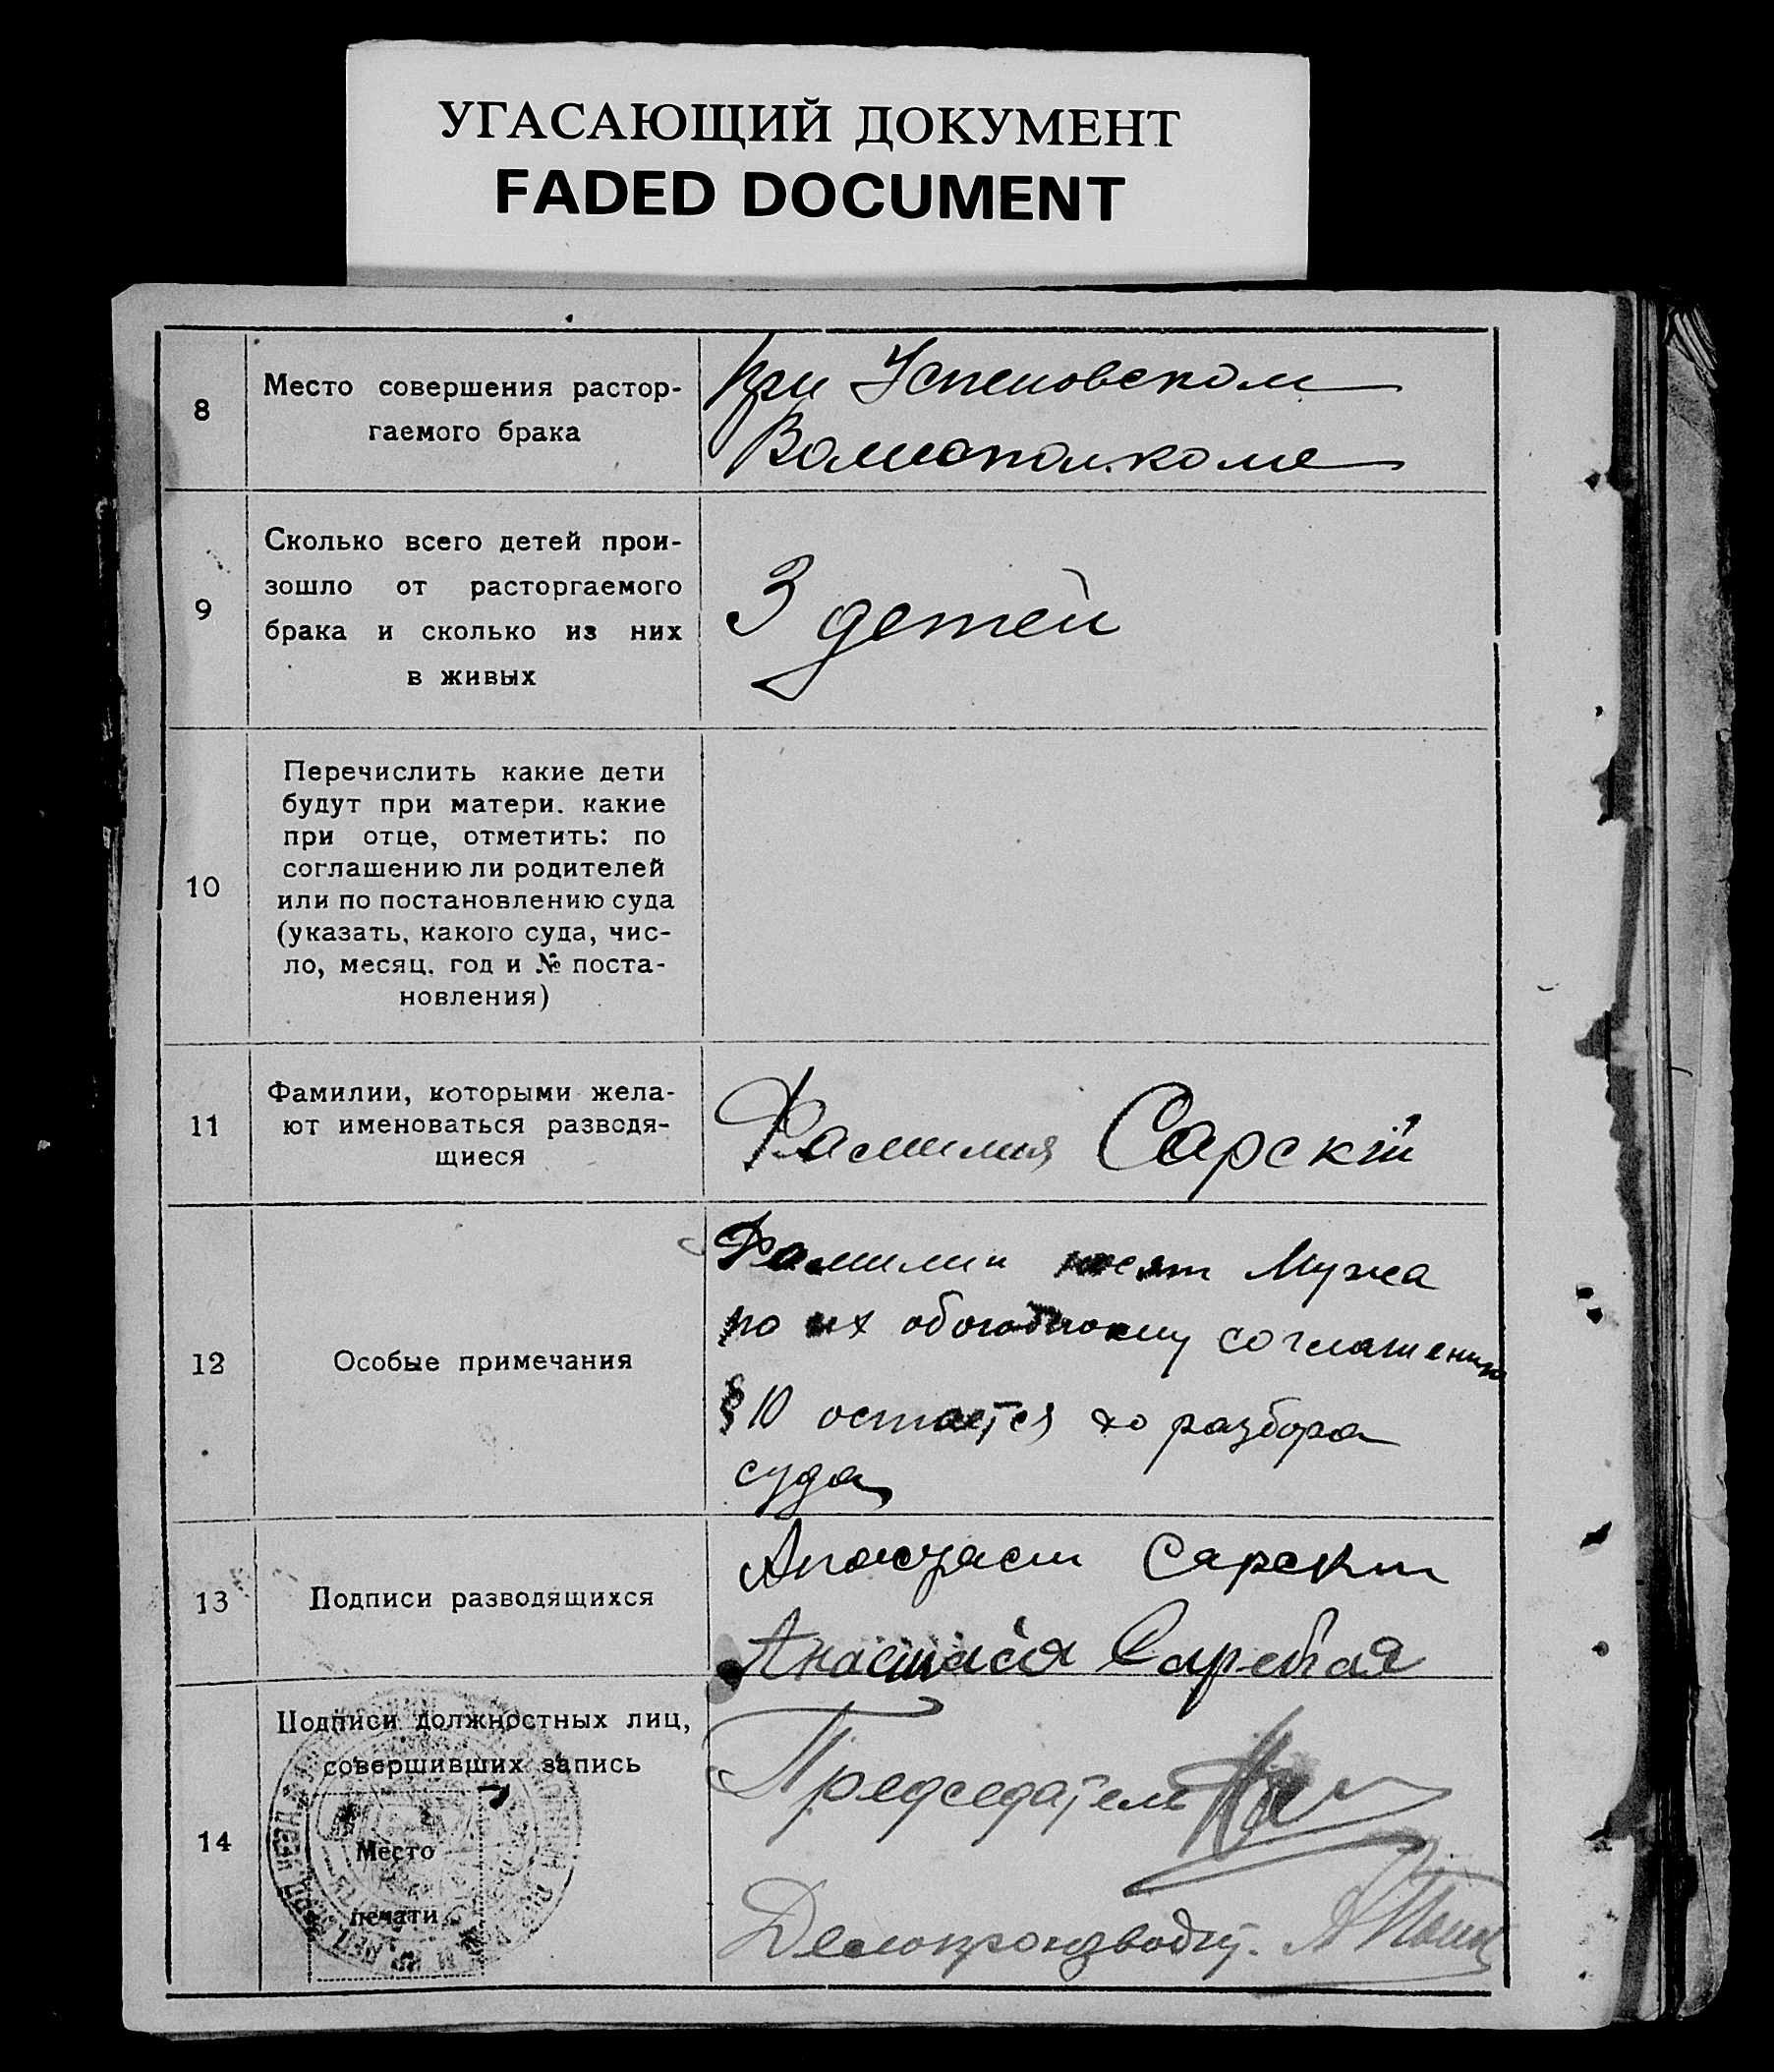 УГАСАЮЩИЙ ДОКУМЕНТ
FADED DOCUMENT
8
Место совершения растор-
гаемого брака
при Успеновском
Волисполкоме
9
Сколько всего детей прои-
зошло от расторгаемого
брака и сколько из них
в живых
3 детей
10
Перечислить какие дети
будут при матери. какие
при отце, отметить: по
соглашению ли родителей
или по постановлению суда
(указать, какого суда, чис-
ло, месяц, год и № поста-
новления)
11
Фамилии, которыми жела-
ют именоваться разводя-
щиеся
Фамилия Сарскій
12
Особые примечания
Фамилии носят Мужа
по их обоюдному соглашению
§ 10 остается до разбора
суда
13
Подписи разводящихся
Сарски
Анастасия Сарская
14
Подписи должностных лиц,
совершивших запись
Место
печати
Председатель
Делопроизводит.